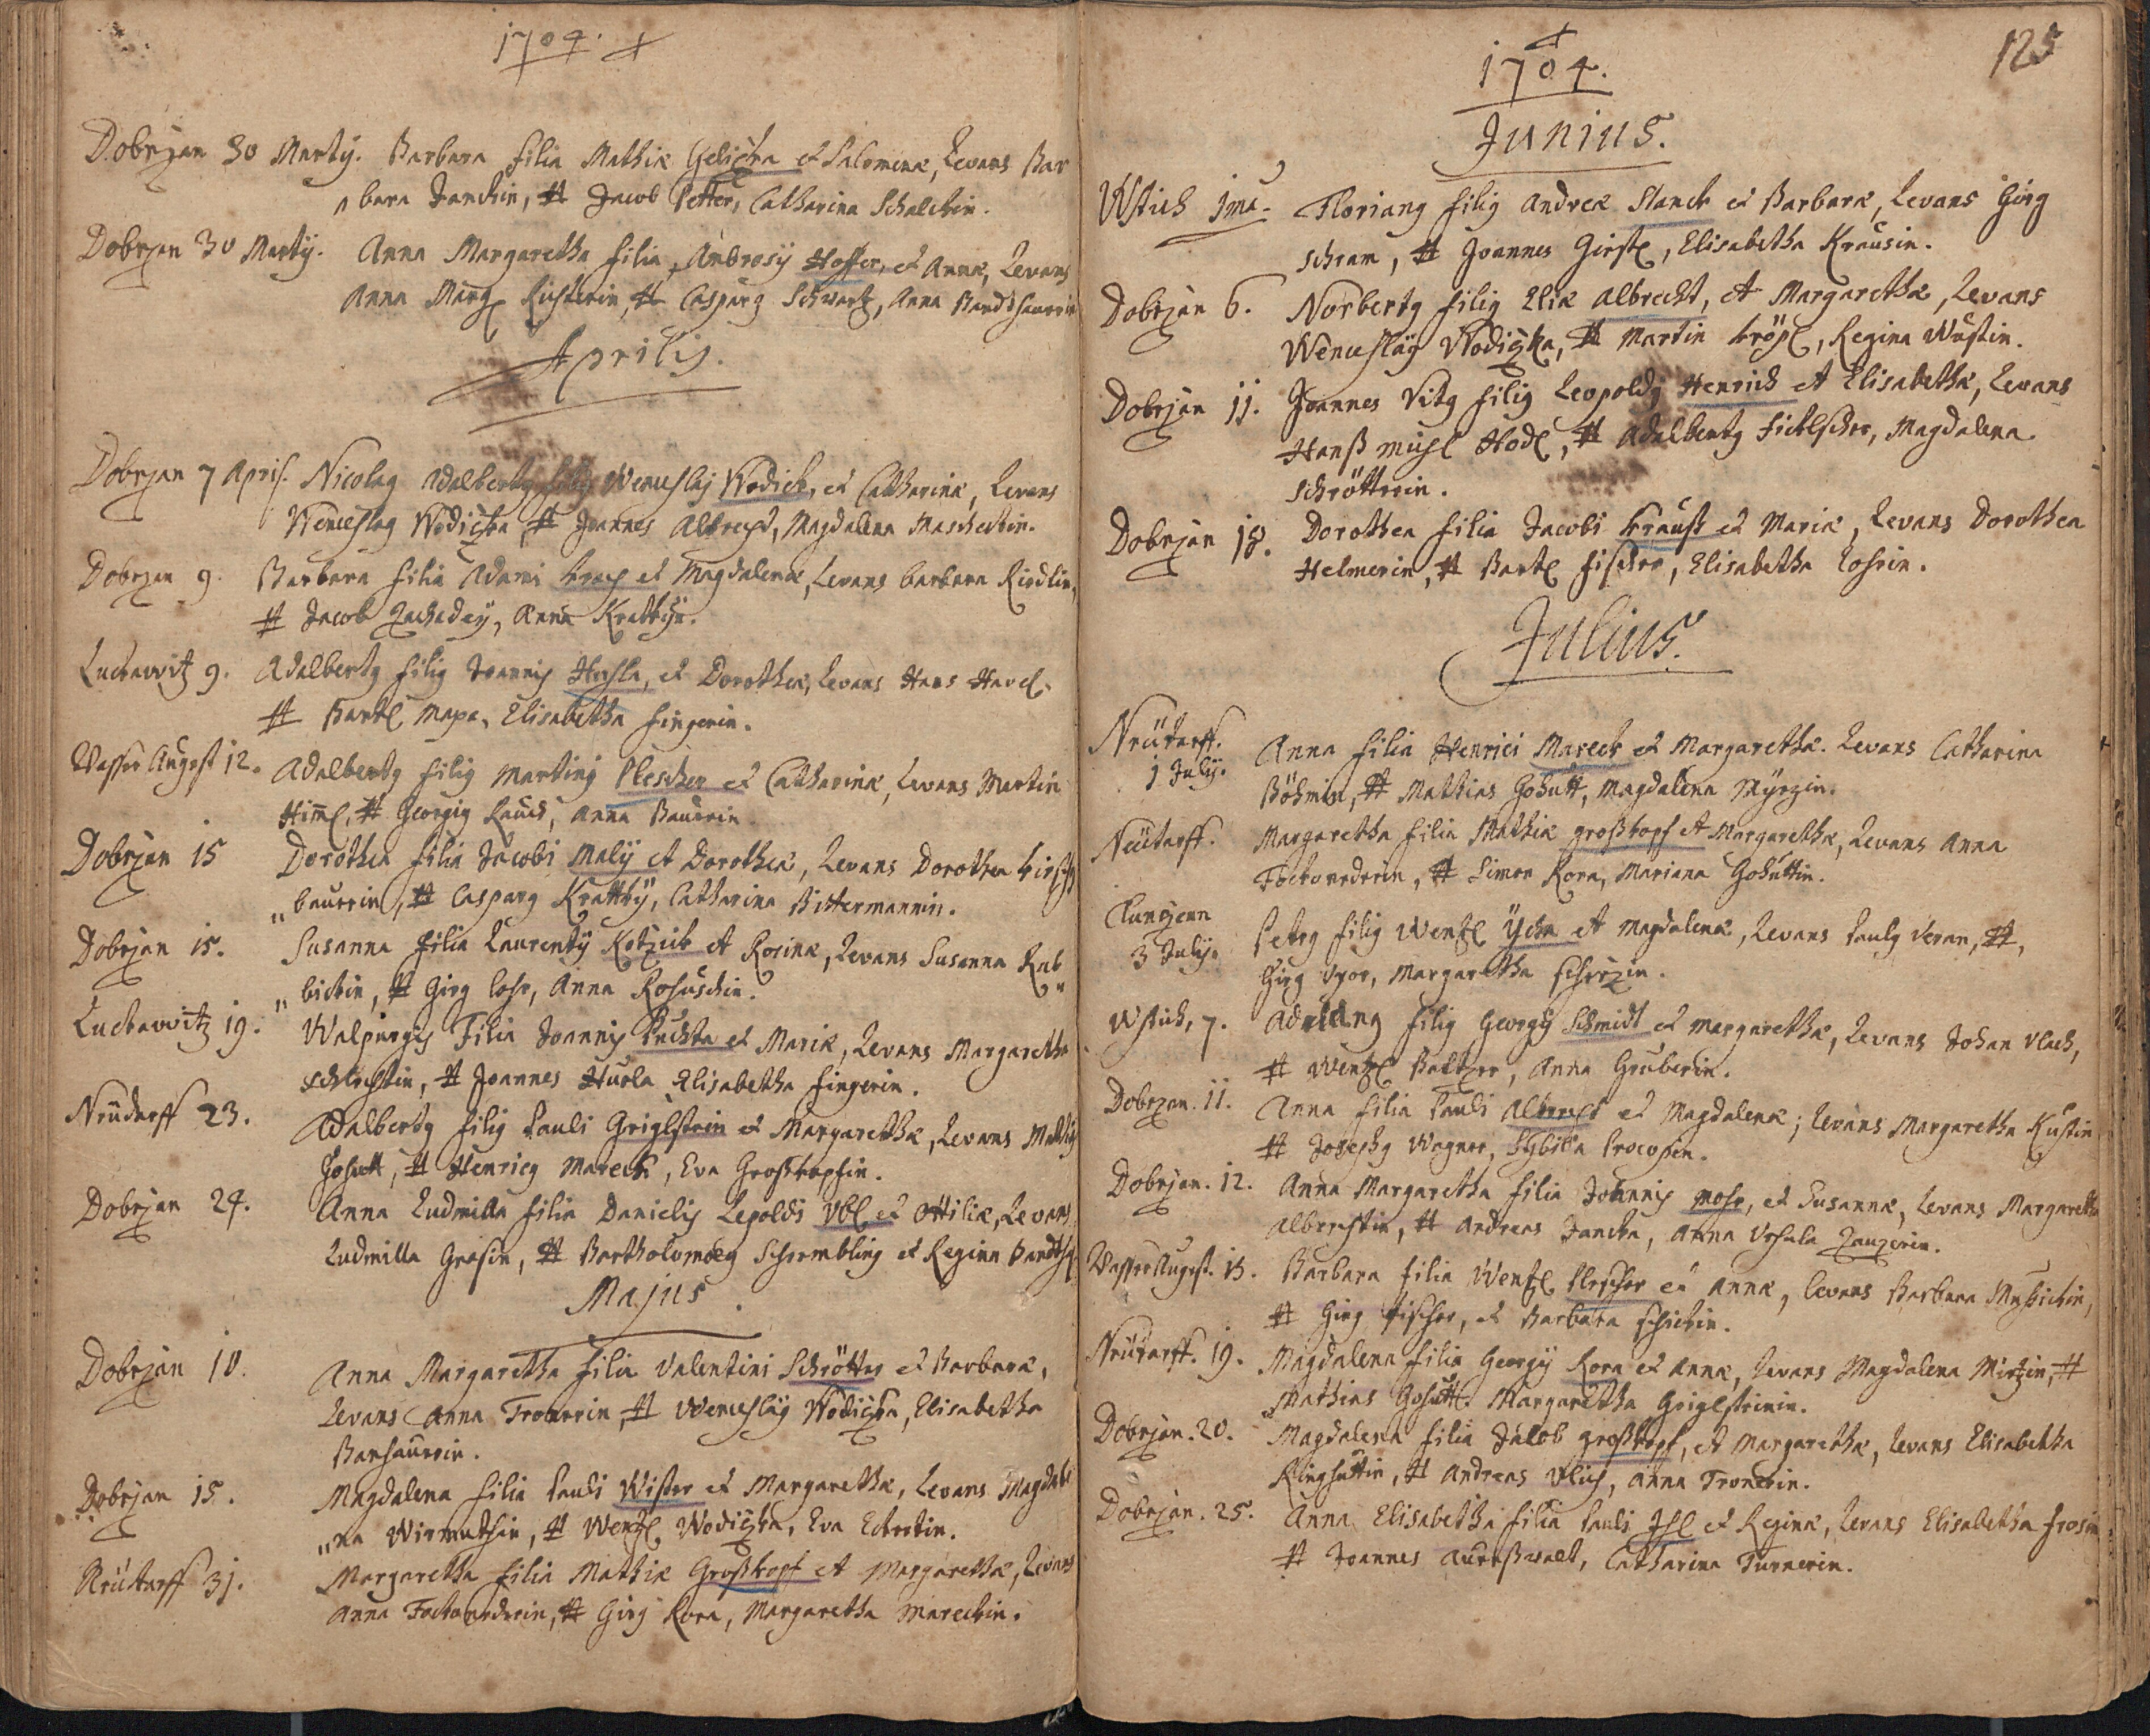 1704.
Dobrzan 30 Marty. Barbara filia Mathiæ Gelicżka et Salomenæ, Levans Bar
bara Janckin, # Jacob Petter, Catharina Schalckin.
Dobrzan 30 Marty. Anna Margaretha filia Ambrosÿ Hoffer, et Annæ, Levans
Anna Marg. Richterin, # Casparg Schwartz, Anna
Aprilis.
Dobrzan 7 Apris. Nicolag Adalbertg filig Wenceslaj Wodick, et Catharinæ, Levans
Wenceslag Wodiczka # Joannes Albrecht, Magdalena Maschecktin.
Dobrzan 9. Barbara filia Adami et Magdalenæ, Levans barbara Riedlin,
# Jacob Anna Krattkÿn.
Luckawitz 9. Adalbertg filig Joannis et Dorotheæ, Levans Hans Havel.
# Bartl Mapa, Elisabetha fingerin.
Wasser August 12. Adalbertg filig Martinj Plescher et Catharinæ, Levans Martin
Himl, # Georgig Anna Baurin.
Dobrzan 15 Dorothea filia Jacobi Malÿ et Dorotheæ, Levans Dorothea Kirsch
„baurin, # Casparg Krattkÿ, Catharina Bittermannin.
Dobrzan 15. Susanna filia Laurentÿ Kotzick et Rosinæ, Levans Susanna Rub
„bickin, # Girg Lohr, Anna Rohuschin.
Luckawitz 19. Walpurgis Filia Joannis Puchta et Mariæ, Levans Margaretha
Schlechtin, # Joannes Huola Elisabetha fingerin.
Neudorff 23. Adalbertg filig Pauli Griglstein et Margarethæ, Levans Mathis
Gohutt, # Henricg Mareck, Eva Großkopfin.
Dobrzan 24. Anna Ludmilla filia Danielis Lepoldi Vbl et Ottiliæ, Levans
Ludmilla Grosin, # Bartholomæg Schrembling et Regina
Majus.
Dobrzan 10. Anna Margaretha filia Valentini Schrötter et Barbaræ,
Levans Anna Tronerin # Wenceslag Wodiczka, Elisabetha
Banhaurin.
Dobrzan 15. Magdalena filia Pauli Wister et Margarethæ, Levans Magdale
„na Wirmuthin, # Wentzl Wodiczka, Eva Eckertin.
Neudorff 31. Margaretha filia Mathiæ Großkopf et Margarethæ, Levans
Anna # Girg Kora, Margaretha Mareckin.
125
1704.
Junius.
Wstich 1ma. Floriang filig Andreæ Stanck et Barbaræ, Levans Girg
Schram, # Joannes Girstl, Elisabetha Krausin.
Dobrzan 6. Norbertg filig Eliæ Albrecht, et Margarethæ, Levans
Wenceslag Wodiczka, # Martin Kröpl, Regina Wustin.
Dobrzan 11. Joannes Vitg filig Leopoldj Henrich et Elisabethæ, Levans
Hanß Hodl, # Adalbertg Magdalena
Schrötterin.
Dobrzan 18. Dorothea filia Jacobi Krauß et Mariæ, Levans Dorothea
Helmerin, # Bartl fischer, Elisabetha Lohrin.
Julius.
Neudarff.
1 Julij. Anna filia Henrici Mareck et Margarethæ. Levans Catharina
Böhmin, # Mathias Gohutt, Magdalena
Neudarff. Margaretha filia Mathiæ großkopf et Margarethæ, Levans Anna
# Simon Kora, Mariana Gohuttin.
3 Julij. Petrg filig Wentzl Ÿcha et Magdalenæ, Levans Paulg Veran, #,
Girg Margaretha
Wstich, 7. filig Georgÿ Schmidt et Margarethæ, Levans Johan Vlach,
# Wentzl Baltzer, Anna Gruberin.
Dobrzan. 11. Anna filia Pauli Albrecht et Magdalenæ; Levans Margaretha Kustin
# Josephg Wagner, Sÿbilla Procopin.
Dobrzan. 12. Anna Margaretha filia Johannis Mohr, et Susannæ, Levans Margaretha
Albrechtin, # Andreas Jancka, Anna Vrsula Zauzerin.
Wasser August. 13. Barbara filia Wentzl Plescher et Annæ, levans Barbara
# Girg fischer, et Barbara
Neudarff. 19. Magdalena filia Georgÿ Kora et Annæ, Levans Magdalena Mirtzin, #
Mathias Gohutt. Margaretha Griglsteinin.
Dobrzan. 20. Magdalena filia Jacob großkopf, et Margarethæ, Levans Elisabetha
Ringhuttin, # Andreas Vlich, Anna Tronerin.
Dobrzan. 25. Anna Elisabetha filia Pauli et Reginæ, Levans Elisabetha
# Joannes Catharina Turnerin.